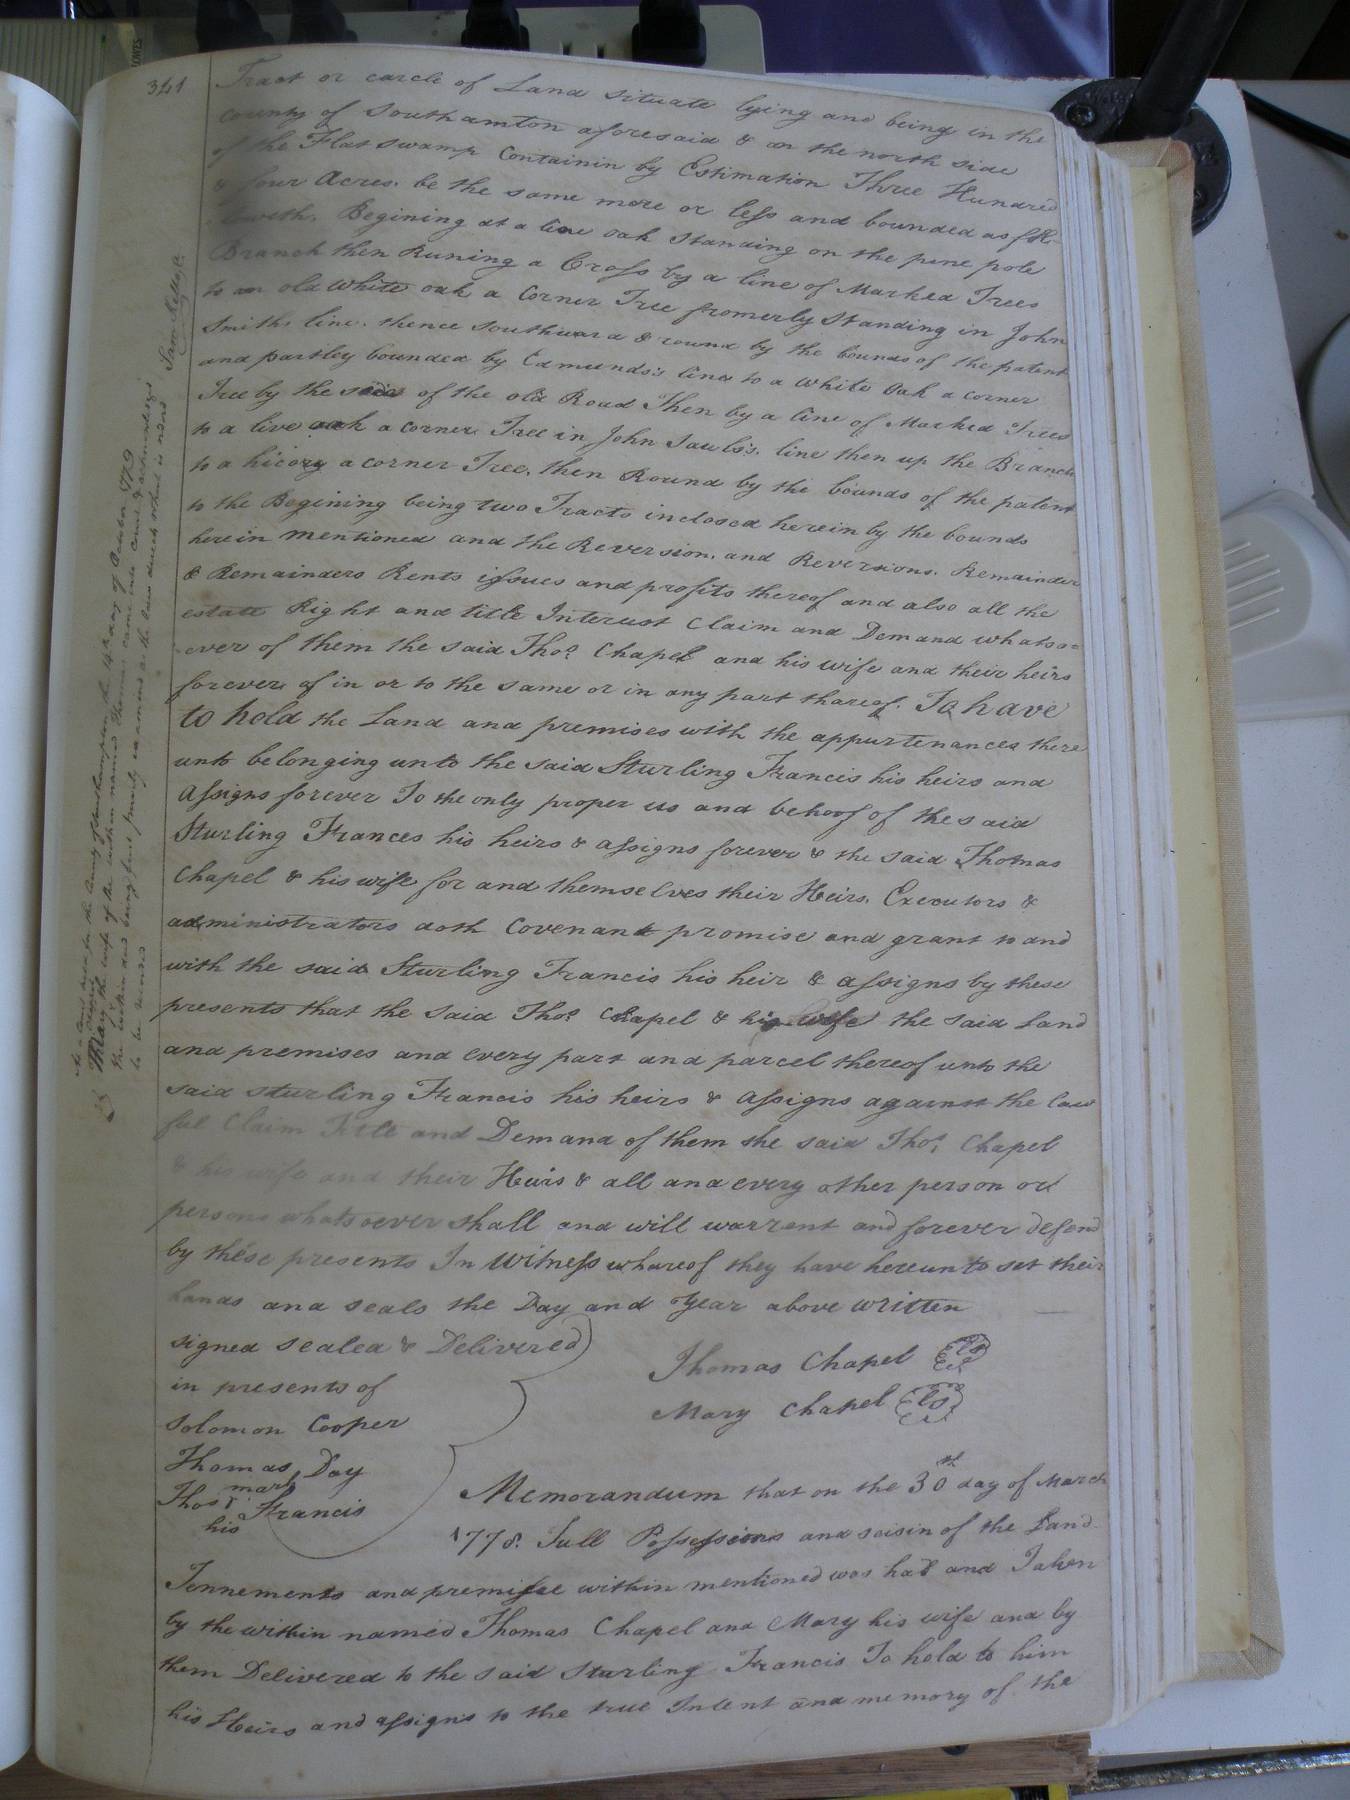 341
Tract or carcle of Land situate lying and being in the
county of Southamton aforesaid & on the north side
of the Flat swamp Containin by Estimation Three Hundred
& four Acres. be the same more or less and bounded as foll-
oweth. Begining at a live oak standing on the pine pole
Branch then Runing a Cross by a line of Marked Trees
to an old White oak a Corner Tree fromerly standing in John
Smiths line. thence Southward & round by the bounds of the patent
and partley bounded by Edmunds's lines to a White Oak a corner
Tree by the side of the old Road Then by a line of Marked Trees
to a live oak a corner Tree in John Sauls's. line then up the Branch
to a hicory a corner Tree. then Round by the bounds of the patent
to the Begining being two Tracts inclosed herein by the bounds
herein mentioned and the Reversion. and Reversions. Remainder
& Remainders Rents issues and profits thereof and also all the
estate Right and title Interust Claim and Demand whatso=
ever of them the said Thos. Chapel and his wife and their heirs
forever of in or to the same or in any part thareof. To have
to hold the Land and premises with the appurtenances there
unto belonging unto the said Sturling Francis his heirs and
Assigns forever To the only proper us and behoof of the said
Sturling Frances his heirs & assigns forever & the said Thomas
Chapel & his wife for and themselves their Heirs. Executors &
administrators doth Covenant promise and grant to and
with the said Sturling Francis his heir & assigns by these
presents that the said Thos. Chapel & his wife the said Land
and premises and every part and parcel thereof unto the
said sturling Francis his heirs & assigns against the law
ful Claim Title and Demand of them the said Thos. Chapel
& his wife and their Heirs & all and every other person or
persons whatsoever shall and will warrent and forever defend
by these presents In Witness whareof they have hereunto set their
hands and seals the Day and Year above written
signed sealed & Delivered
in presents of
Solomon Cooper
Thomas Day
mark
Thos Francis
his
Thomas Chapel Ls
Mary Chapel Ls
Memorandum that on the 30th day of March
1778. Full Possessions and seisin of the Land
Tennements and premisee within mentioned was had and Taken
by the within named Thomas Chapel and Mary his wife and by
them Delivered to the said Starling Francis To hold to him
his Heirs and assigns to the true Intent and memory of the
At a Court held for the County of Southampton the 14th day of October 1779
Mary the wife of the within named Thomas came into Court & acknowledged
the within deed being first privily examined as the law directs which is ordered
to be recorded
Sam Kello